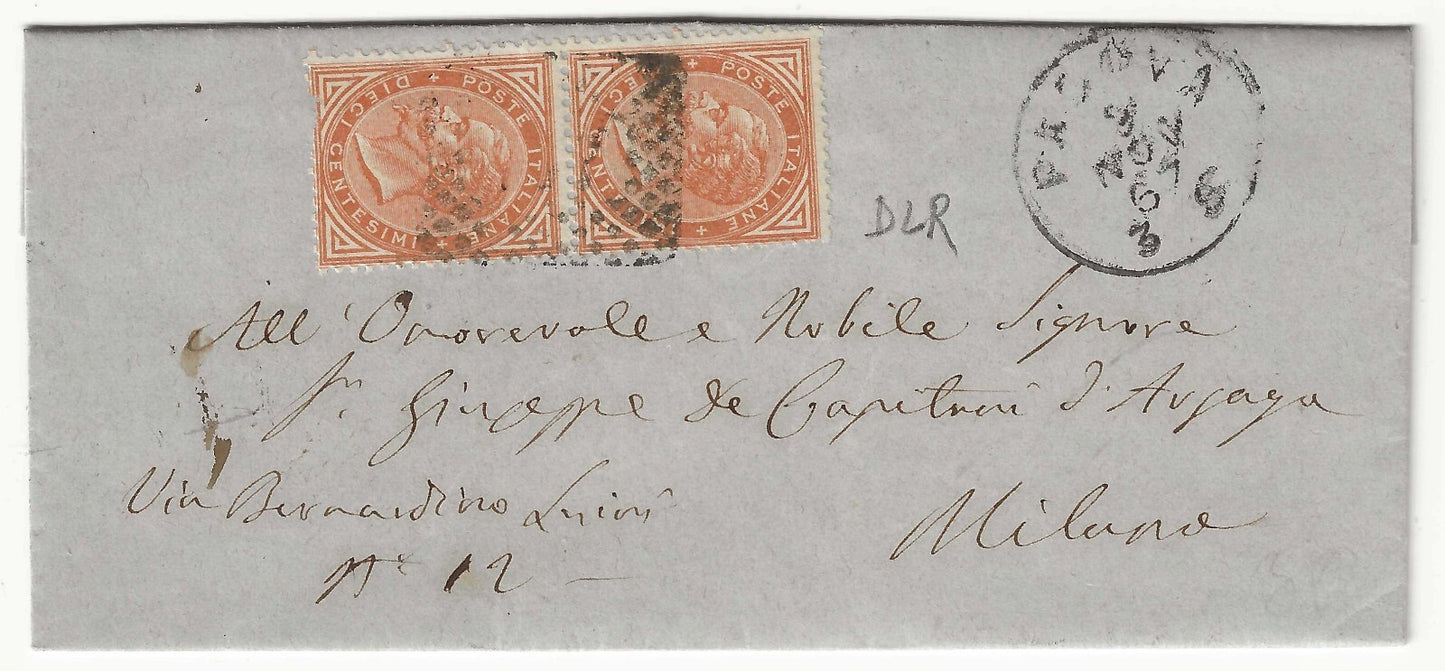 POSTE ITALIANE
DIECI CENTESIMI
POSTE ITALIANE
DIECI CENT
DLR
PADOVA
All' Onorevole e Nobile Signore
Sr. Giuseppe de Capitani d'Arzago
Via Bernardino Luini
No. 12 —
Milano